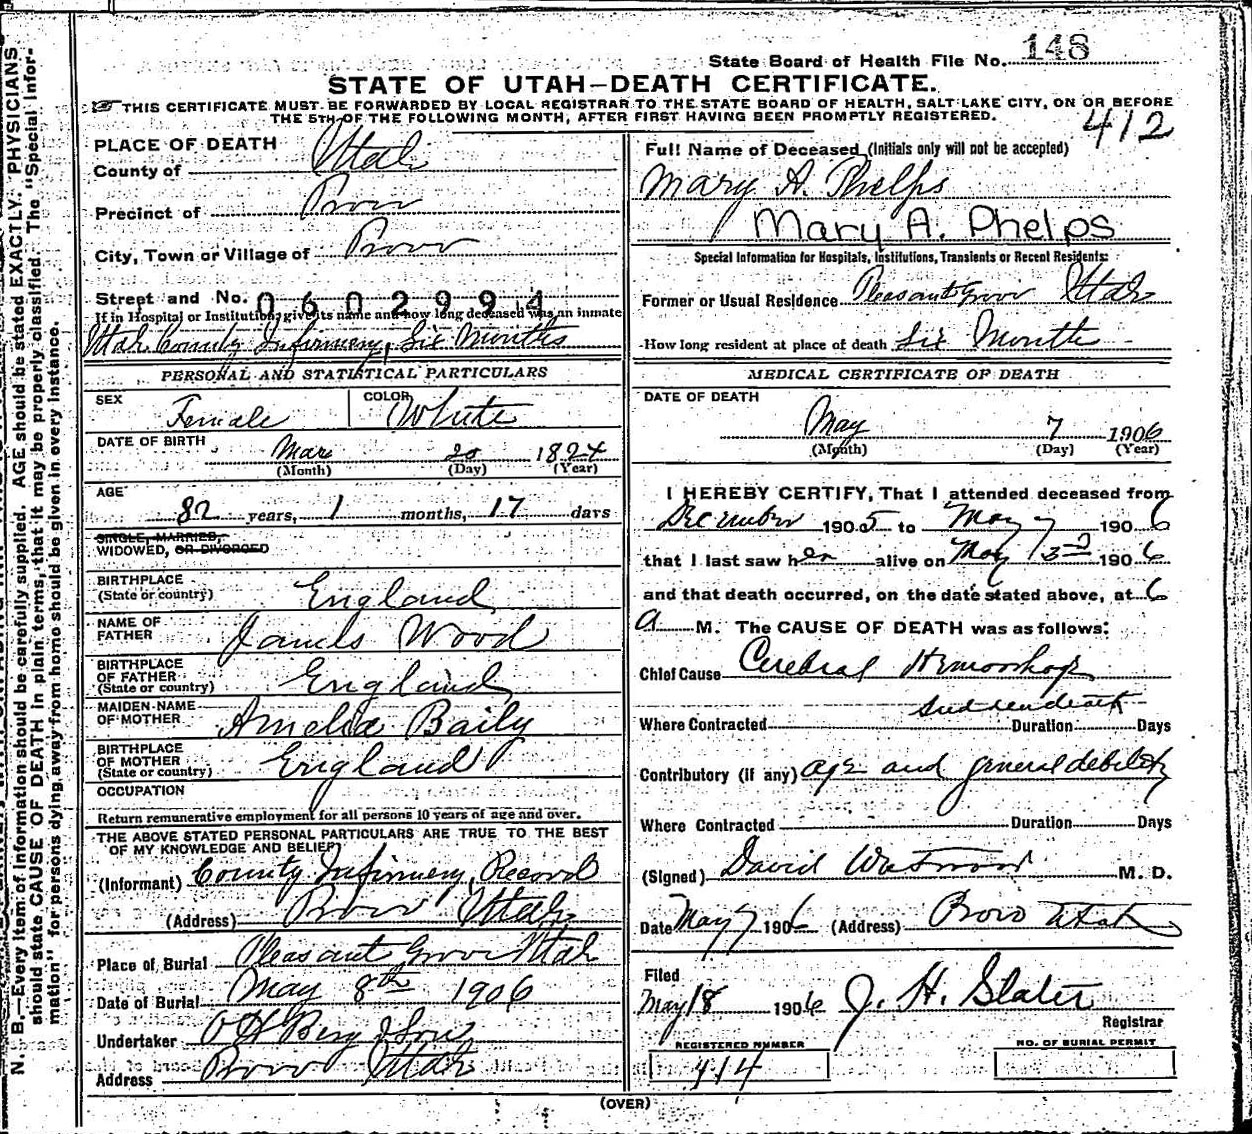 State Board of Health File No. 148
STATE OF UTAH—DEATH CERTIFICATE.
THIS CERTIFICATE MUST BE FORWARDED BY LOCAL REGISTRAR TO THE STATE BOARD OF HEALTH, SALT LAKE CITY, ON OR BEFORE
THE 5TH OF THE FOLLOWING MONTH, AFTER FIRST HAVING BEEN PROMPTLY REGISTERED.
412
PLACE OF DEATH
County of Utah
Precinct of Provo
City, Town or Village of Provo
Street and No. 0602994
If in Hospital or Institution, give its name and how long deceased was an inmate
Utah County Infirmery, Six Months
PERSONAL AND STATISTICAL PARTICULARS
SEX Female COLOR White
DATE OF BIRTH Mar 20 1824
(Month) (Day) (Year)
AGE
82 years, 1 months, 17 days
SINGLE, MARRIED,
WIDOWED, OR DIVORCED
BIRTHPLACE
(State or country) England
NAME OF
FATHER James Wood
BIRTHPLACE
OF FATHER
(State or country) England
MAIDEN NAME
OF MOTHER Amelia Baily
BIRTHPLACE
OF MOTHER
(State or country) England
OCCUPATION
Return remunerative employment for all persons 10 years of age and over.
THE ABOVE STATED PERSONAL PARTICULARS ARE TRUE TO THE BEST
OF MY KNOWLEDGE AND BELIEF
(Informant) County Infirmery Record
(Address) Provo Utah
Place of Burial Pleasant Grove Utah
Date of Burial May 8th 1906
Undertaker O H Berg & Son
Address Provo Utah
Full Name of Deceased (Initials only will not be accepted)
Mary A. Phelps
Mary A. Phelps
Special Information for Hospitals, Institutions, Transients or Recent Residents:
Former or Usual Residence Pleasant Grove Utah
How long resident at place of death Six Months
MEDICAL CERTIFICATE OF DEATH
DATE OF DEATH
May 7 1906
(Month) (Day) (Year)
I HEREBY CERTIFY, That I attended deceased from
December 1905 to May 7 1906
that I last saw her alive on May 3rd 1906
and that death occurred, on the date stated above, at 6
a M. The CAUSE OF DEATH was as follows:
Chief Cause Cerebral Hemorrhage
sudden death
Where Contracted Duration Days
Contributory (if any) age and general debility
Where Contracted Duration Days
(Signed) David Westwood M. D.
Date May 7 1906 (Address) Provo Utah
Filed
May 18 1906 J. H. Slater
Registrar
REGISTERED NUMBER
414
NO. OF BURIAL PERMIT
(OVER)
N. B.—Every item of information should be carefully supplied. AGE should be stated EXACTLY. PHYSICIANS
should state CAUSE OF DEATH in plain terms, that it may be properly classified. The "Special Infor-
mation" for persons dying away from home should be given in every instance.